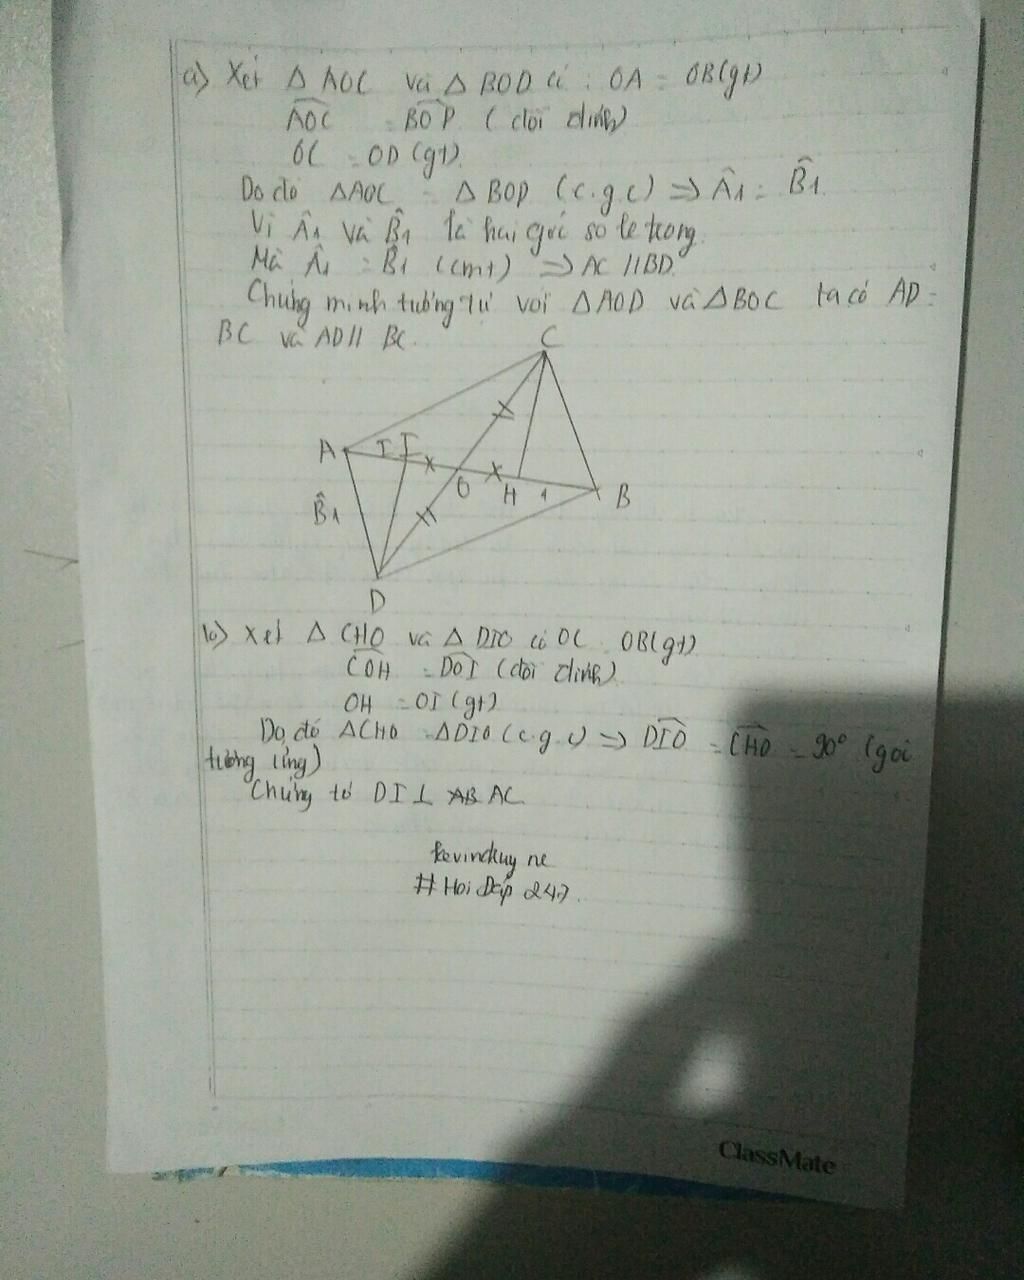 a) Xét Δ AOC và Δ BOD có : OA = OB(gt)
AOC = BOD (đối đỉnh)
OC = OD (gt).
Do đó ΔAOC = Δ BOD (c.g.c) => Â1 = B̂1.
Vì Â1 và B̂1 là hai góc so le trong.
Mà Â1 = B̂1 (cmt) => AC //BD.
Chứng minh tương tự với ΔAOD và ΔBOC ta có AD =
BC và AD// BC.
C
A
I I
O
H
1
B
B̂1
D
b) Xét Δ CHO và Δ DIO có OC OB(gt)
COH = DOI (đối đỉnh)
OH = OI (gt)
Do đó ΔCHO = ΔDIO (c.g.c) => DIO = CHO = 90° (góc
tương ứng)
Chứng tỏ DI ⊥ AB AC
kevinduy ne
# Hoi Đáp 247.
ClassMate